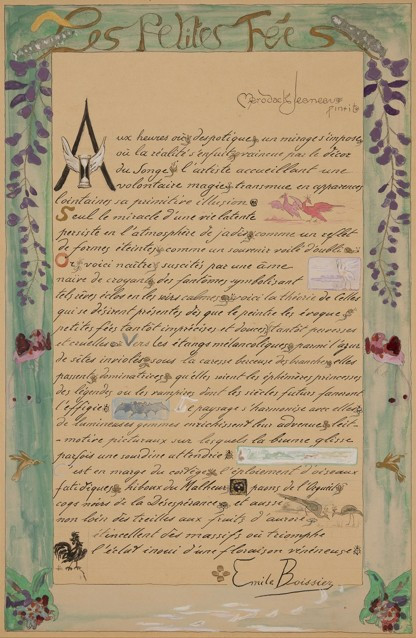 Les Petites Fées
Mérodack Jeaneau
pinxit
Aux heures où despotique un mirage s'impose
où la réalité s'enfuit vaincue par le décor
du Songe l'artiste accueillant une
volontaire magie transmue en apparences
lointaines sa primitive illusion
Seul le miracle d'une vie latente
persiste en l'atmosphère de jadis comme un reflet
de formes éteintes comme un souvenir voilé d'oubli
Or voici naître suscités par une âme
naïve de croyant des fantômes symbolisant
les rêves éclos en les soirs calmes voici la théorie de Celles
qui se désirent présentes dès que le peintre les évoque
petites fées tantôt imprécises et douces tantôt perverses
et cruelles Vers les étangs mélancoliques parmi l'azur
de sites inviolés sous la caresse berceuse des branches elles
passent dominatrices qu'elles soient les éphémères princesses
des légendes ou les vampires dont les siècles futurs faneront
l'effigie Le paysage s'harmonise avec elles
de lumineuses gammes enrichissent leur advenue leit-
motive picturaux sur lesquels la brume glisse
parfois une sourdine attendrie
est en marge du cortège l'éploiement d'oiseaux
fatidiques hiboux du Malheur paons de l'Orgueil
coqs noirs de la Désespérance et aussi
non loin des treilles aux fruits d'aurore
étincellent des massifs où triomphe
l'éclat inouï d'une floraison vénéneuse
Emile Boissier